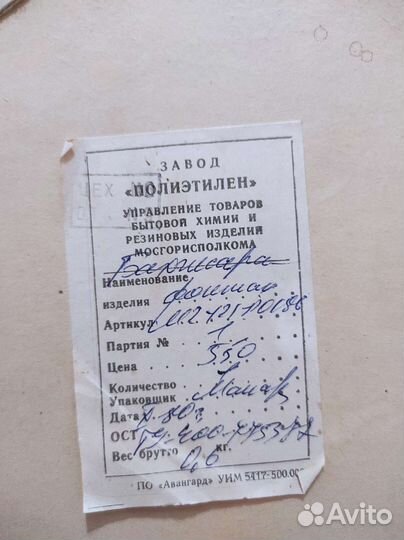 ЗАВОД
«ПОЛИЭТИЛЕН»
ЦЕХ
УПРАВЛЕНИЕ ТОВАРОВ
БЫТОВОЙ ХИМИИ И
РЕЗИНОВЫХ ИЗДЕЛИЙ
МОСГОРИСПОЛКОМА
Наименование
изделия фонтан
Артикул
Партия № 1
Цена 550
Количество
Упаковщик
Дата 80г
ОСТ
Вес брутто 0,6 кг.
ПО «Авангард» УИМ 5417-500.000
Avito